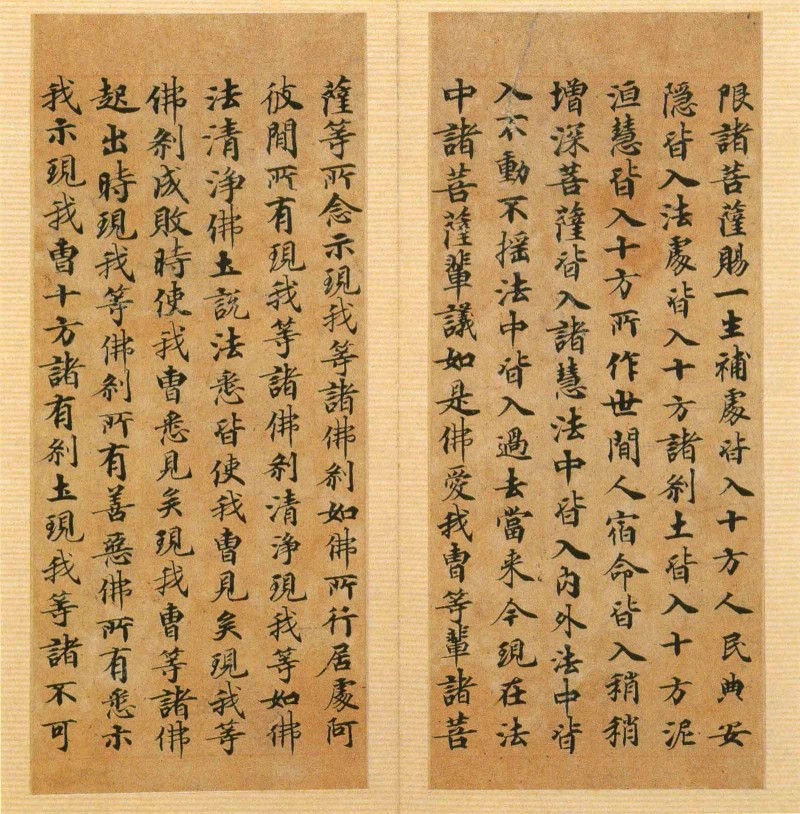 限諸菩薩賜一生補處皆入十方人民典安
隠皆入法處皆入十方諸刹土皆入十方泥
洹慧皆入十方所作世間人宿命皆入稍稍
增深菩薩皆入諸慧法中皆入內外法中皆
入不動不摇法中皆入過去當来今現在法
中諸菩薩輩議如是佛愛我曹等輩諸菩
薩等所念示現我等諸佛刹如佛所行居處阿
彼間所有現我等諸佛刹清淨現我等如佛
法清淨佛土說法悉皆使我曹見矣現我等
佛刹成敗時使我曹悉見矣現我曹等諸佛
起出時現我等佛刹所有善惡佛所有悉示
我示現我曹十方諸有刹土現我等諸不可